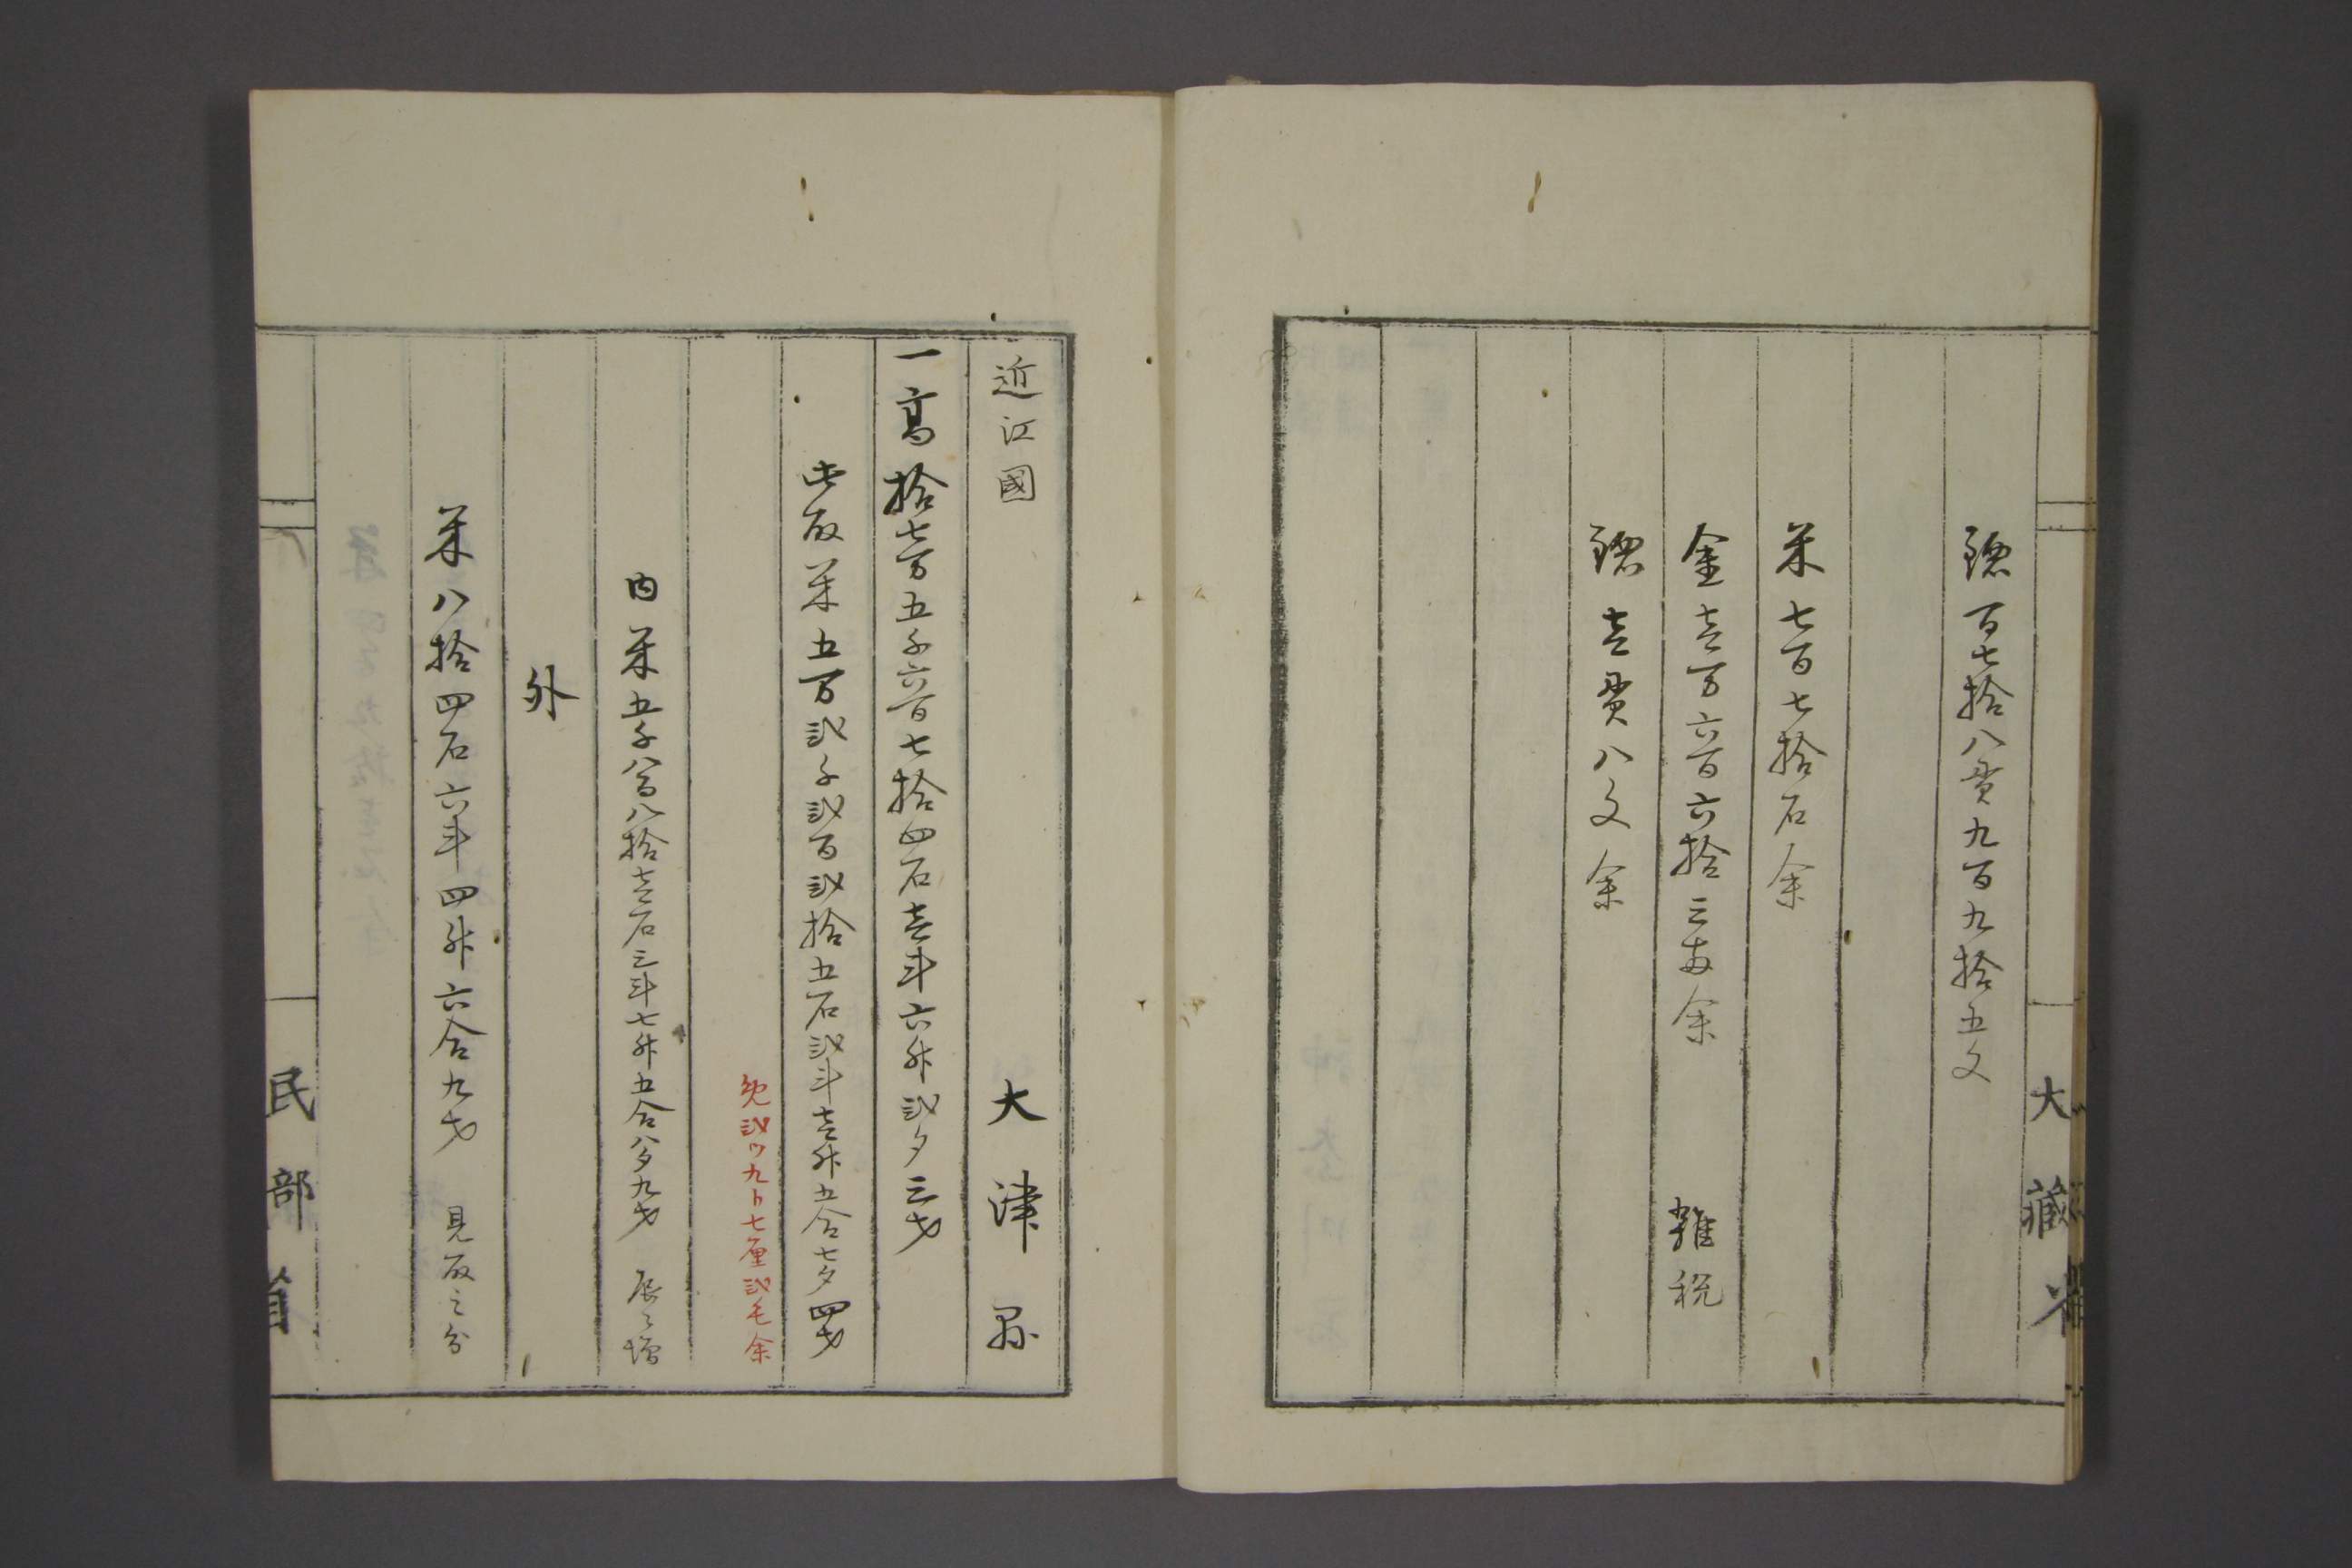 大藏省
鐚百七拾八貫九百九拾五文
米七百七拾石余
金壱万六百六拾三両余 雑税
鐚壱貫八文余
近江國 大津縣
一高拾七万五千六百七拾四石壱斗六升弐夕三才
此取米五万弐千弐百弐拾五石弐斗壱升五合七夕四才
免弐ツ九卜七厘弐毛余
内米五千八百八拾壱石三斗七升五合八夕九才 辰ゟ増
外
米八拾四石六斗四升六合九才 見取之分
民部省